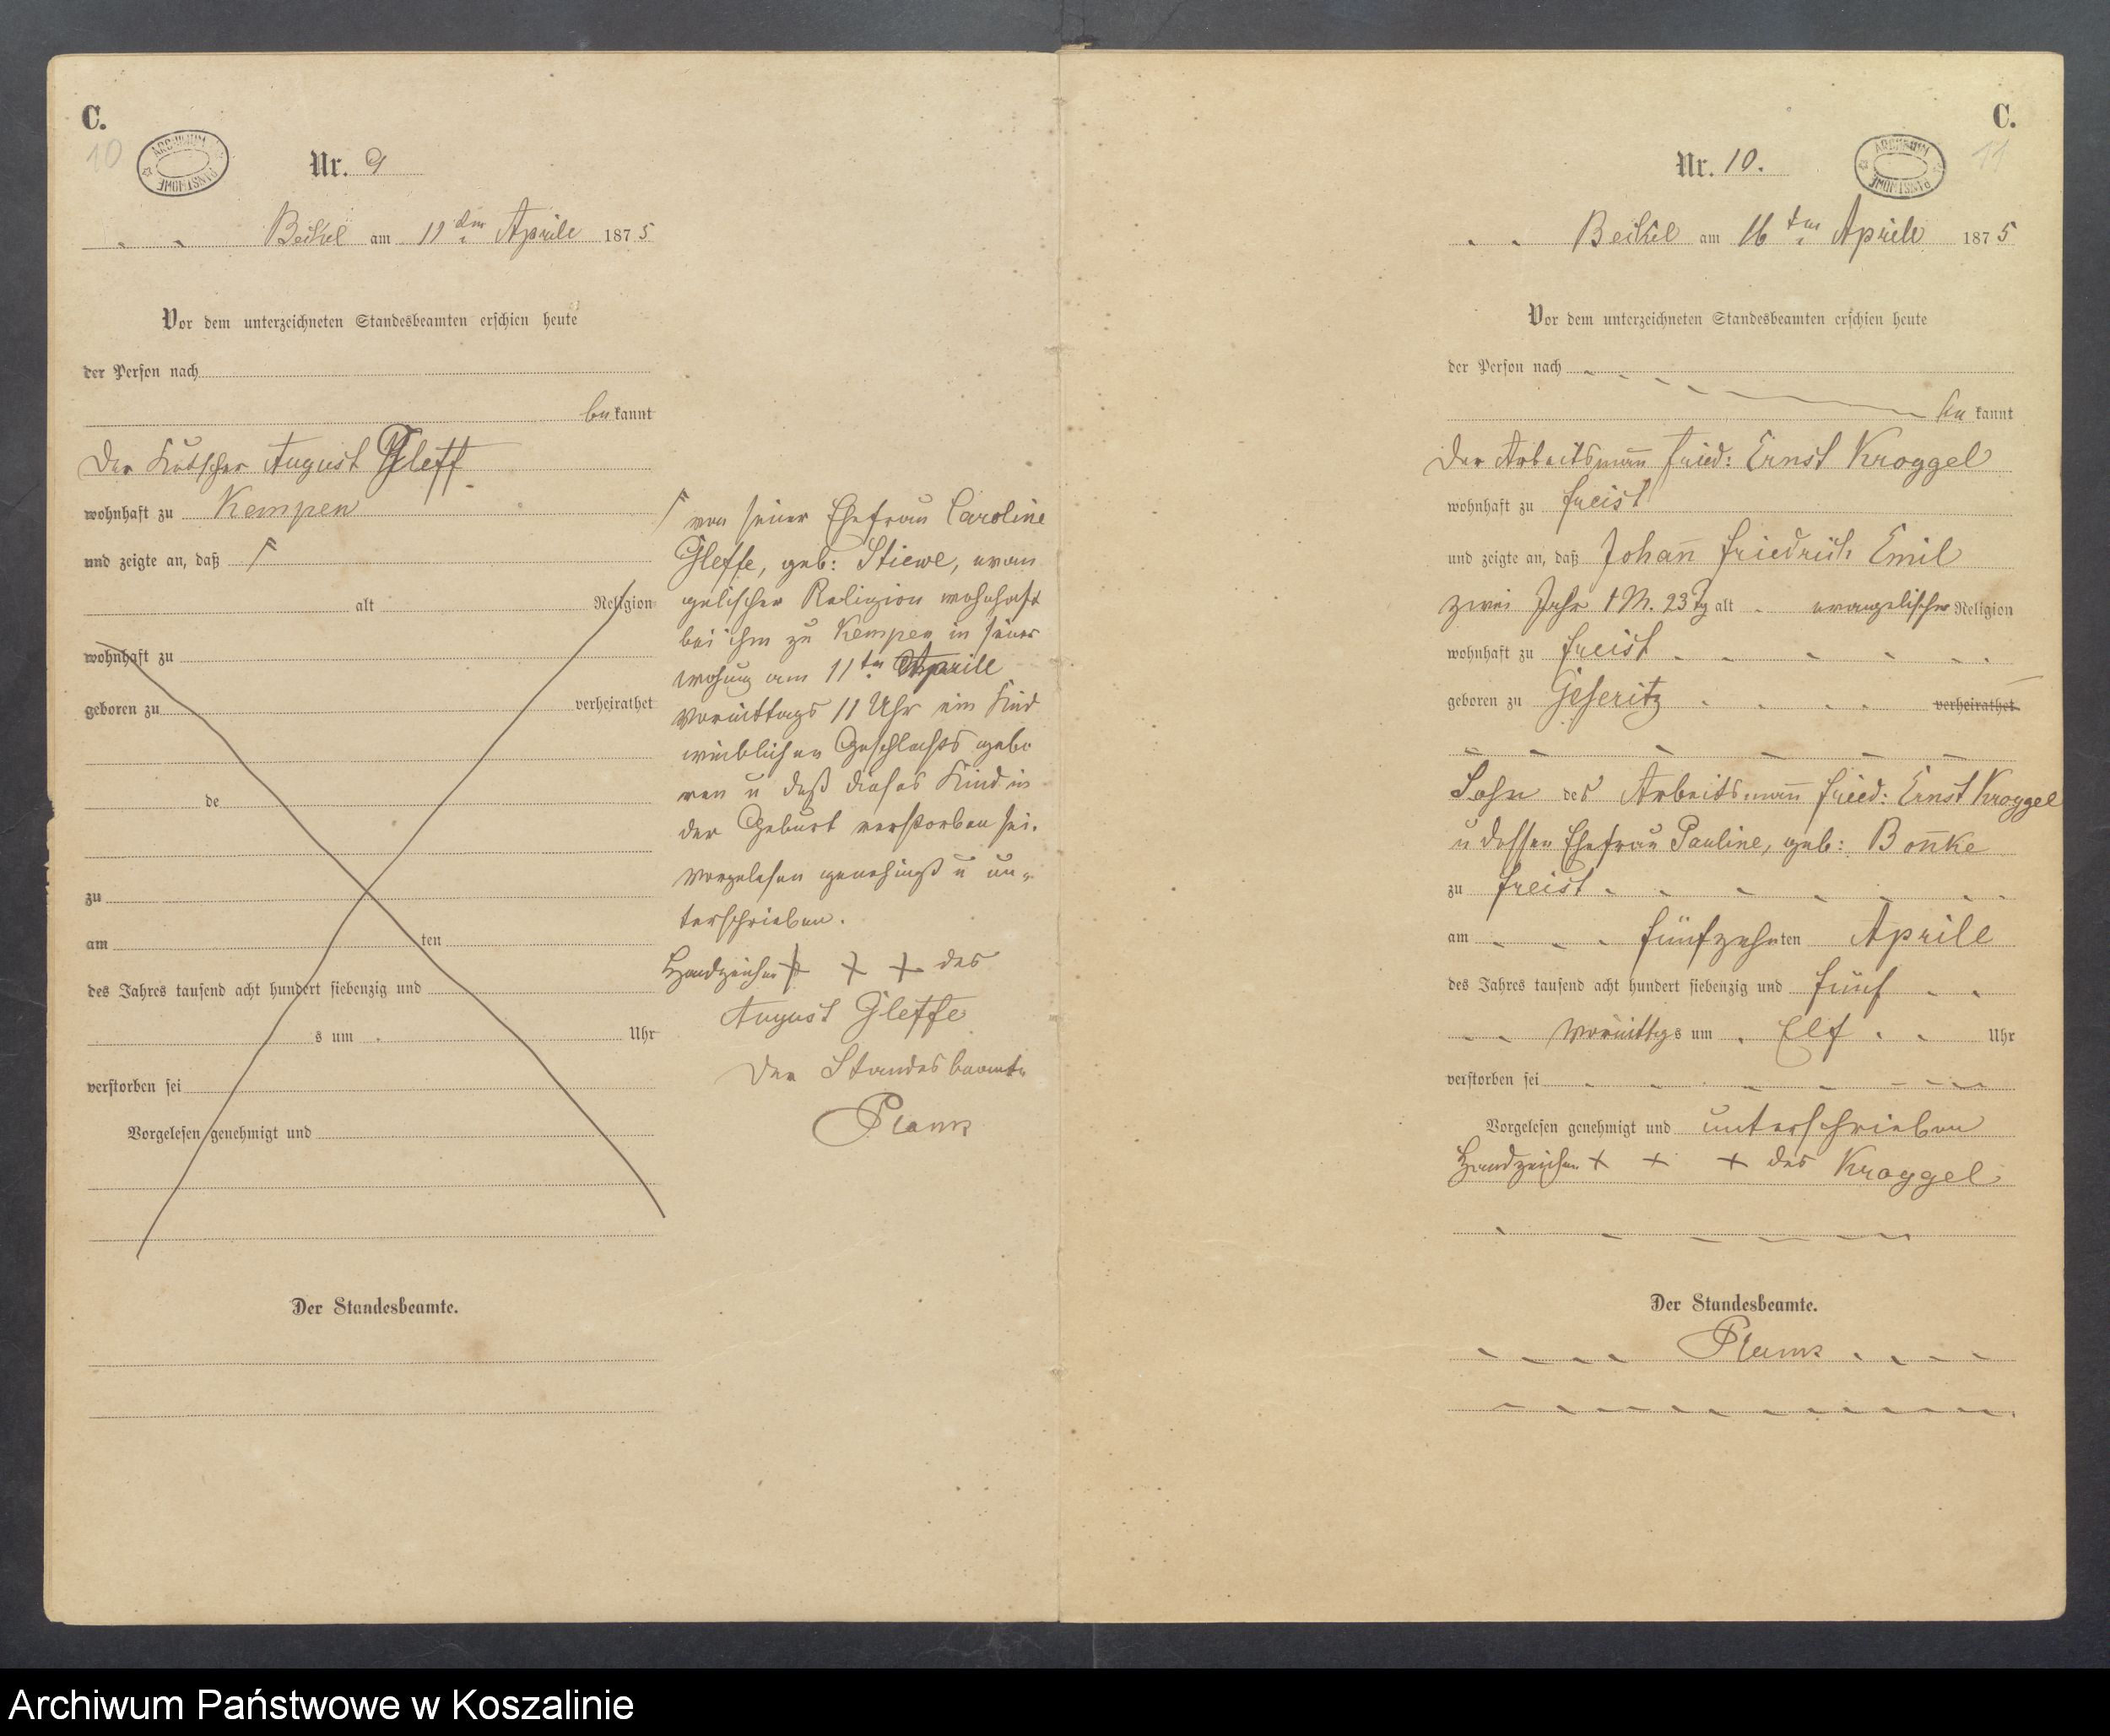 C.
10
ARCHIWUM PAŃSTWOWE
Nr. 9
Beikel am 12 ten Aprile 1875
Vor dem unterzeichneten Standesbeamten erschien heute
der Person nach
be kannt
Der Kutscher August Gleff
wohnhaft zu Kempen
und zeigte an, daß
alt Religion
wohnhaft zu
geboren zu verheirathet
de
zu
am ten
des Jahres tausend acht hundert siebenzig und
s um Uhr
verstorben sei
Vorgelesen genehmigt und
Der Standesbeamte.
von seiner Ehefrau Caroline
Gleffe, geb: Stiewe, evan
gelischer Religion wohnhaft
bei ihm zu Kempen in seiner
wohung am 11 ten Aprill
Vormittags 11 Uhr ein Kind
weiblichen Geschlechts gebo
ren u daß dieses Kind in
der Geburt verstorben sei.
Vorgelesen genehmigt u un-
terschrieben.
Handzeichen + + + des
August Gleffe
Der Standesbeamte
C.
11
ARCHIWUM PAŃSTWOWE
Nr. 10.
Beikel am 16 ten Aprile 1875
Vor dem unterzeichneten Standesbeamten erschien heute
der Person nach
be kannt
Der Arbeitsmañ Fried: Ernst Kroggel
wohnhaft zu Freist
und zeigte an, daß Johañ Friedrich Emil
zwei Jahr 1 M. 23 Tg alt evangelischer Religion
wohnhaft zu Freist
geboren zu Geseritz verheirathet
Sohn des Arbeitsmañ Fried: Ernst Kroggel
u dessen Ehefrau Pauline, geb: Boñke
zu Freist
am fünfzehnten Aprile
des Jahres tausend acht hundert siebenzig und fünf
Vormittags um Elf Uhr
verstorben sei
Vorgelesen genehmigt und unterschrieben
Handzeichen + + + des Kroggel
Der Standesbeamte.
Archiwum Państwowe w Koszalinie